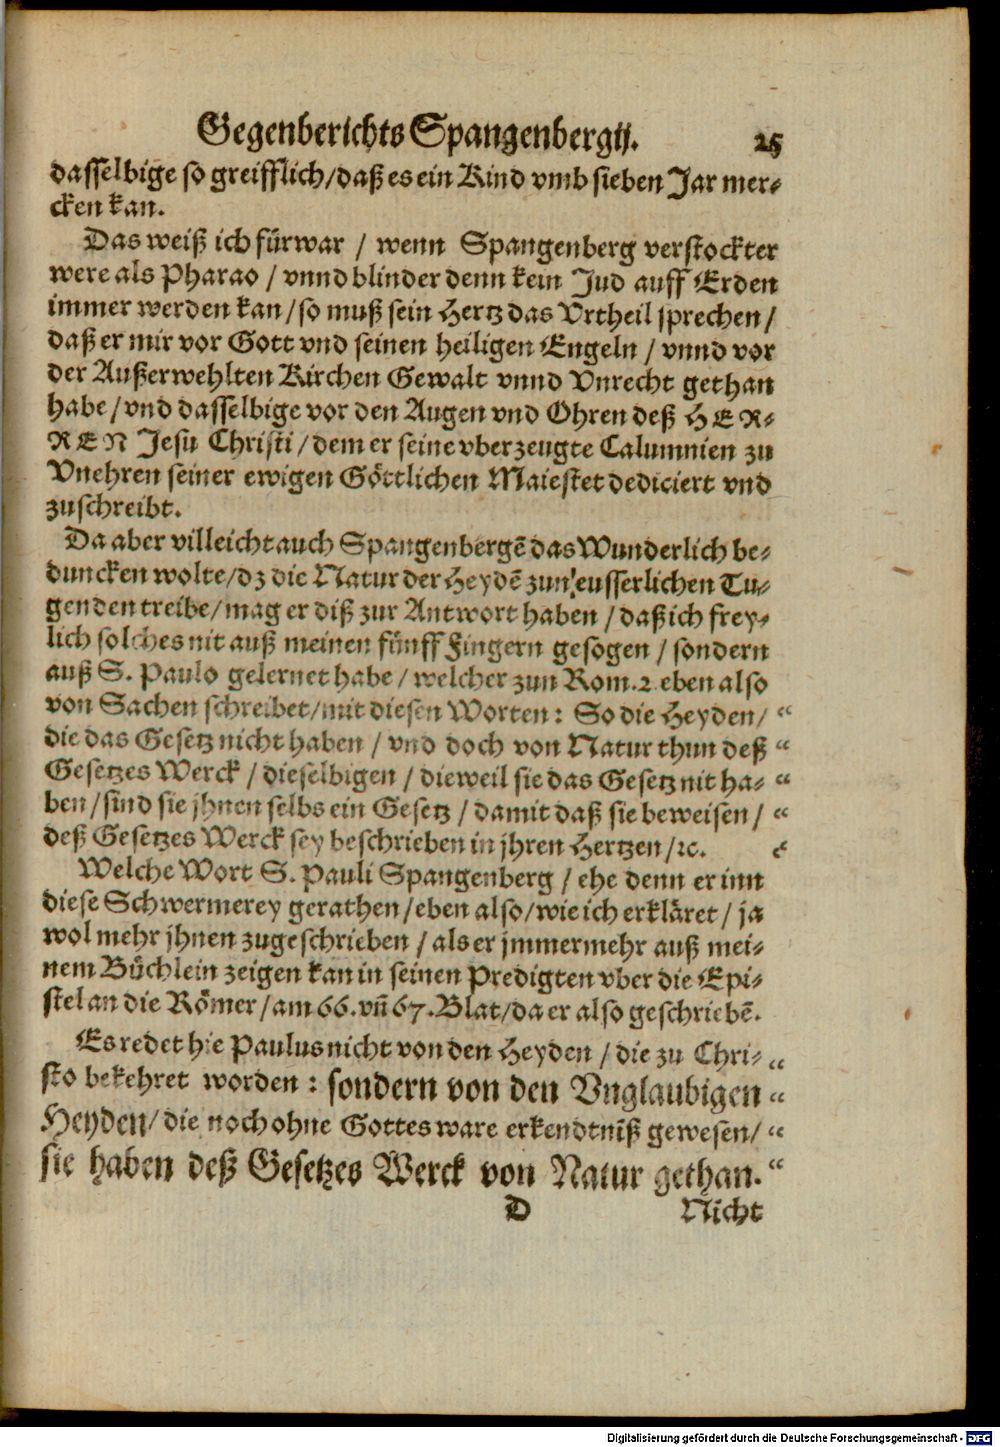 Gegenberichts Spangenbergij. 25
dasselbige so greifflich/daß es ein Kind vmb sieben Jar mer-
cken kan.
Das weiß ich fürwar / wenn Spangenberg verstockter
were als Pharao / vnnd blinder denn kein Jud auff Erden
immer werden kan/so muß sein Hertz das Vrtheil sprechen/
daß er mir vor Gott vnd seinen heiligen Engeln / vnnd vor
der Außerwehlten Kirchen Gewalt vnnd Vnrecht gethan
habe/vnd dasselbige vor den Augen vnd Ohren deß HER-
REN Jesu Christi/dem er seine vberzeugte Calumnien zu
Vnehren seiner ewigen Göttlichen Maiestet dediciert vnd
zuschreibt.
Da aber villeicht auch Spangenbergẽ das Wunderlich be-
duncken wolte/dz die Natur der Heydẽ zun eusserlichen Tu-
genden treibe/mag er diß zur Antwort haben / daß ich frey-
lich solches nit auß meinen fünff Fingern gesogen / sondern
auß S. Paulo gelernet habe/welcher zun Rom.2.eben also
von Sachen schreibet/mit diesen Worten: So die Heyden/ “
die das Gesetz nicht haben / vnd doch von Natur thun deß “
Gesetzes Werck / dieselbigen / dieweil sie das Gesetz nit ha- “
ben/sind sie jhnen selbs ein Gesetz / damit daß sie beweisen / “
deß Gesetzes Werck sey beschrieben in jhren Hertzen/ꝛc. “
Welche Wort S. Pauli Spangenberg / ehe denn er inn
diese Schwermerey gerathen/eben also/wie ich erkläret/ ja
wol mehr jhnen zugeschrieben / als er jmmermehr auß mei-
nem Büchlein zeigen kan in seinen Predigten vber die Epi-
stel an die Römer/am 66.vñ 67.Blat/da er also geschriebẽ.
Es redet hie Paulus nicht von den Heyden / die zu Chri- “
sto bekehret worden : sondern von den Vnglaubigen “
Heyden/die noch ohne Gottes ware erkendtniß gewesen/ “
sie haben deß Gesetzes Werck von Natur gethan. “
D Nicht
Digitalisierung gefördert durch die Deutsche Forschungsgemeinschaft - DFG